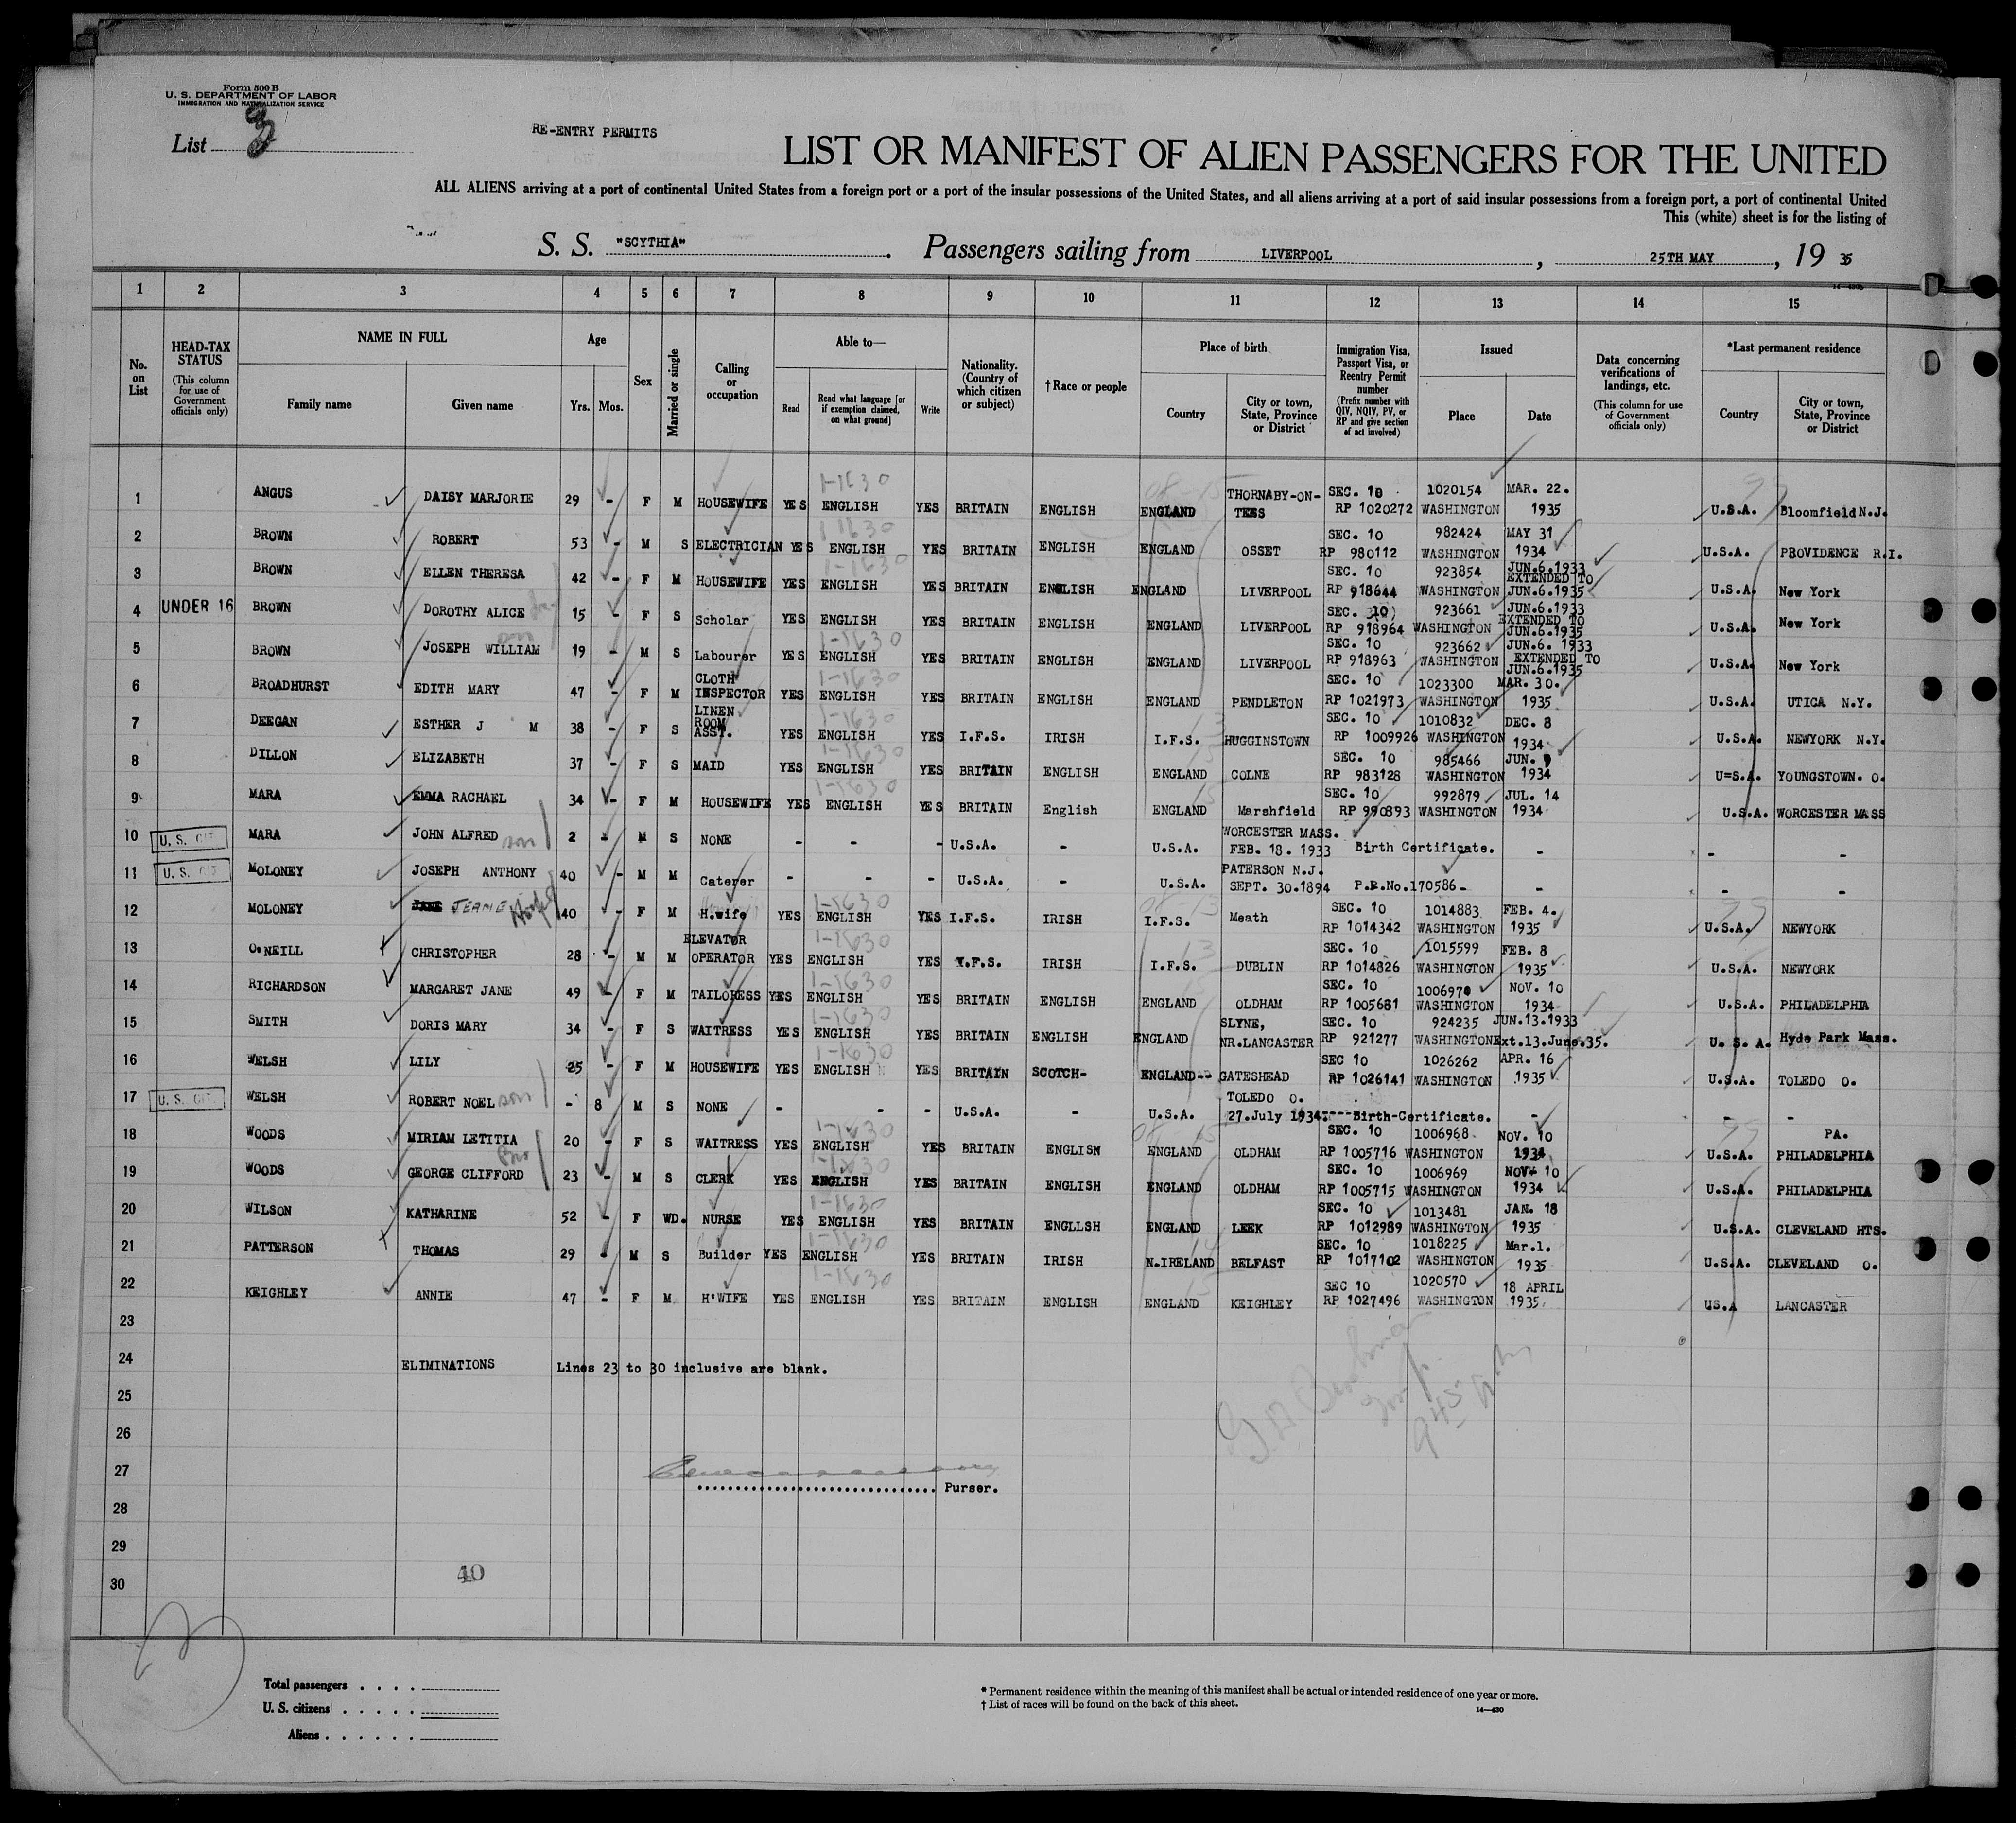 Form 500 B
U. S. DEPARTMENT OF LABOR
IMMIGRATION AND NATURALIZATION SERVICE
List 3
RE-ENTRY PERMITS
LIST OR MANIFEST OF ALIEN PASSENGERS FOR THE UNITED
ALL ALIENS arriving at a port of continental United States from a foreign port or a port of the insular possessions of the United States, and all aliens arriving at a port of said insular possessions from a foreign port, a port of continental United
This (white) sheet is for the listing of
S. S. "SCYTHIA". Passengers sailing from LIVERPOOL, 25TH MAY, 19 35
1 2 3 4 5 6 7 8 9 10 11 12 13 14 15
No. on List
HEAD-TAX STATUS (This column for use of Government officials only)
NAME IN FULL Family name Given name
Age Yrs. Mos.
Sex
Married or single
Calling or occupation
Able to— Read Read what language [or if exemption claimed, on what ground] Write
Nationality. (Country of which citizen or subject)
† Race or people
Place of birth Country City or town, State, Province or District
Immigration Visa, Passport Visa, or Reentry Permit number (Prefix number with QIV, NQIV, PV, or RP and give section of act involved)
Issued Place Date
Data concerning verifications of landings, etc. (This column for use of Government officials only)
*Last permanent residence Country City or town, State, Province or District
1 ANGUS DAISY MARJORIE 29 - F M HOUSEWIFE YES 1-1630 ENGLISH YES BRITAIN ENGLISH ENGLAND THORNABY-ON-TEES SEC. 10 RP 1020272 1020154 WASHINGTON MAR. 22. 1935 U.S.A. Bloomfield N.J.
2 BROWN ROBERT 53 - M S ELECTRICIAN YES 1-1630 ENGLISH YES BRITAIN ENGLISH ENGLAND OSSET SEC. 10 RP 980112 982424 WASHINGTON MAY 31 1934 U.S.A. PROVIDENCE R.I.
3 BROWN ELLEN THERESA 42 - F M HOUSEWIFE YES 1-1630 ENGLISH YES BRITAIN ENGLISH ENGLAND LIVERPOOL SEC. 10 RP 918644 923854 WASHINGTON JUN.6.1933 EXTENDED TO JUN.6.1935 U.S.A. New York
4 UNDER 16 BROWN DOROTHY ALICE 15 - F S Scholar YES ENGLISH YES BRITAIN ENGLISH ENGLAND LIVERPOOL SEC. 10 RP 918964 923661 WASHINGTON JUN.6.1933 EXTENDED TO JUN.6.1935 U.S.A. New York
5 BROWN JOSEPH WILLIAM son 19 - M S Labourer YES 1-1630 ENGLISH YES BRITAIN ENGLISH ENGLAND LIVERPOOL SEC. 10 RP 918963 923662 WASHINGTON JUN.6. 1933 EXTENDED TO JUN.6.1935 U.S.A. New York
6 BROADHURST EDITH MARY 47 - F M CLOTH INSPECTOR YES 1-1630 ENGLISH YES BRITAIN ENGLISH ENGLAND PENDLETON SEC. 10 RP 1021973 1023300 WASHINGTON MAR. 30. 1935 U.S.A. UTICA N.Y.
7 DEEGAN ESTHER J M 38 - F S LINEN ROOM ASST. YES 1-1630 ENGLISH YES I.F.S. IRISH I.F.S. HUGGINSTOWN SEC. 10 RP 1009926 1010832 WASHINGTON DEC. 8 1934 U.S.A. NEWYORK N.Y.
8 DILLON ELIZABETH 37 - F S MAID YES 1-1630 ENGLISH YES BRITAIN ENGLISH ENGLAND COLNE SEC. 10 RP 983128 985466 WASHINGTON JUN. 1934 U=S.A. YOUNGSTOWN. O.
9 MARA EMMA RACHAEL 34 - F M HOUSEWIFE YES 1-1630 ENGLISH YES BRITAIN English ENGLAND Marshfield SEC. 10 RP 990893 992879 WASHINGTON JUL. 14 1934 U.S.A. WORCESTER MASS
10 U. S. CIT. MARA JOHN ALFRED son 2 - M S NONE - - - U.S.A. - U.S.A. WORCESTER MASS. FEB. 18. 1933 Birth Certificate. - - -
11 U. S. CIT. MOLONEY JOSEPH ANTHONY 40 - M M Caterer - - - U.S.A. - U.S.A. PATERSON N.J. SEPT. 30.1894 P.P.No.170586- - - -
12 MOLONEY JEANE 40 - F M H.wife YES 1-1630 ENGLISH YES I.F.S. IRISH I.F.S. Meath SEC. 10 RP 1014342 1014883 WASHINGTON FEB. 4. 1935 U.S.A. NEWYORK
13 O'NEILL CHRISTOPHER 28 - M M ELEVATOR OPERATOR YES 1-1630 ENGLISH YES I.F.S. IRISH I.F.S. DUBLIN SEC. 10 RP 1014826 1015599 WASHINGTON FEB. 8 1935 U.S.A. NEWYORK
14 RICHARDSON MARGARET JANE 49 - F M TAILORESS YES 1-1630 ENGLISH YES BRITAIN ENGLISH ENGLAND OLDHAM SEC. 10 RP 1005681 1006970 WASHINGTON NOV. 10 1934 U.S.A. PHILADELPHIA
15 SMITH DORIS MARY 34 - F S WAITRESS YES 1-1630 ENGLISH YES BRITAIN ENGLISH ENGLAND SLYNE, NR.LANCASTER SEC. 10 RP 921277 924235 WASHINGTON JUN.13.1933 Ext.13.June.35. U. S. A. Hyde Park Mass.
16 WELSH LILY 25 - F M HOUSEWIFE YES 1-1630 ENGLISH YES BRITAIN SCOTCH- ENGLAND-- GATESHEAD SEC 10 RP 1026141 1026262 WASHINGTON APR. 16 1935 U.S.A. TOLEDO O.
17 U. S. CIT. WELSH ROBERT NOEL son - 8 M S NONE - - - U.S.A. - U.S.A. TOLEDO O. 27.July 1934.---Birth-Certificate. - - -
18 WOODS MIRIAM LETITIA 20 - F S WAITRESS YES 1-1630 ENGLISH YES BRITAIN ENGLISH ENGLAND OLDHAM SEC. 10 RP 1005716 1006968 WASHINGTON NOV. 10 1934 U.S.A. PA. PHILADELPHIA
19 WOODS GEORGE CLIFFORD Bro 23 - M S CLERK YES 1-1630 ENGLISH YES BRITAIN ENGLISH ENGLAND OLDHAM SEC. 10 RP 1005715 1006969 WASHINGTON NOV. 10 1934 U.S.A. PHILADELPHIA
20 WILSON KATHARINE 52 - F WD. NURSE YES 1-1630 ENGLISH YES BRITAIN ENGLLSH ENGLAND LEEK SEC. 10 RP 1012989 1013481 WASHINGTON JAN. 18 1935 U.S.A. CLEVELAND HTS.
21 PATTERSON THOMAS 29 - M S Builder YES 1-1630 ENGLISH YES BRITAIN IRISH N.IRELAND BELFAST SEC. 10 RP 1017102 1018225 WASHINGTON Mar.1. 1935 U.S.A. CLEVELAND O.
22 KEIGHLEY ANNIE 47 - F M H'WIFE YES 1-1630 ENGLISH YES BRITAIN ENGLISH ENGLAND KEIGHLEY SEC 10 RP 1027496 1020570 WASHINGTON 18 APRIL 1935. US.A LANCASTER
23
24 ELIMINATIONS Lines 23 to 30 inclusive are blank.
25
26
27
Purser.
28
29
30
40
Total passengers
U. S. citizens
Aliens
* Permanent residence within the meaning of this manifest shall be actual or intended residence of one year or more.
† List of races will be found on the back of this sheet.
14—430